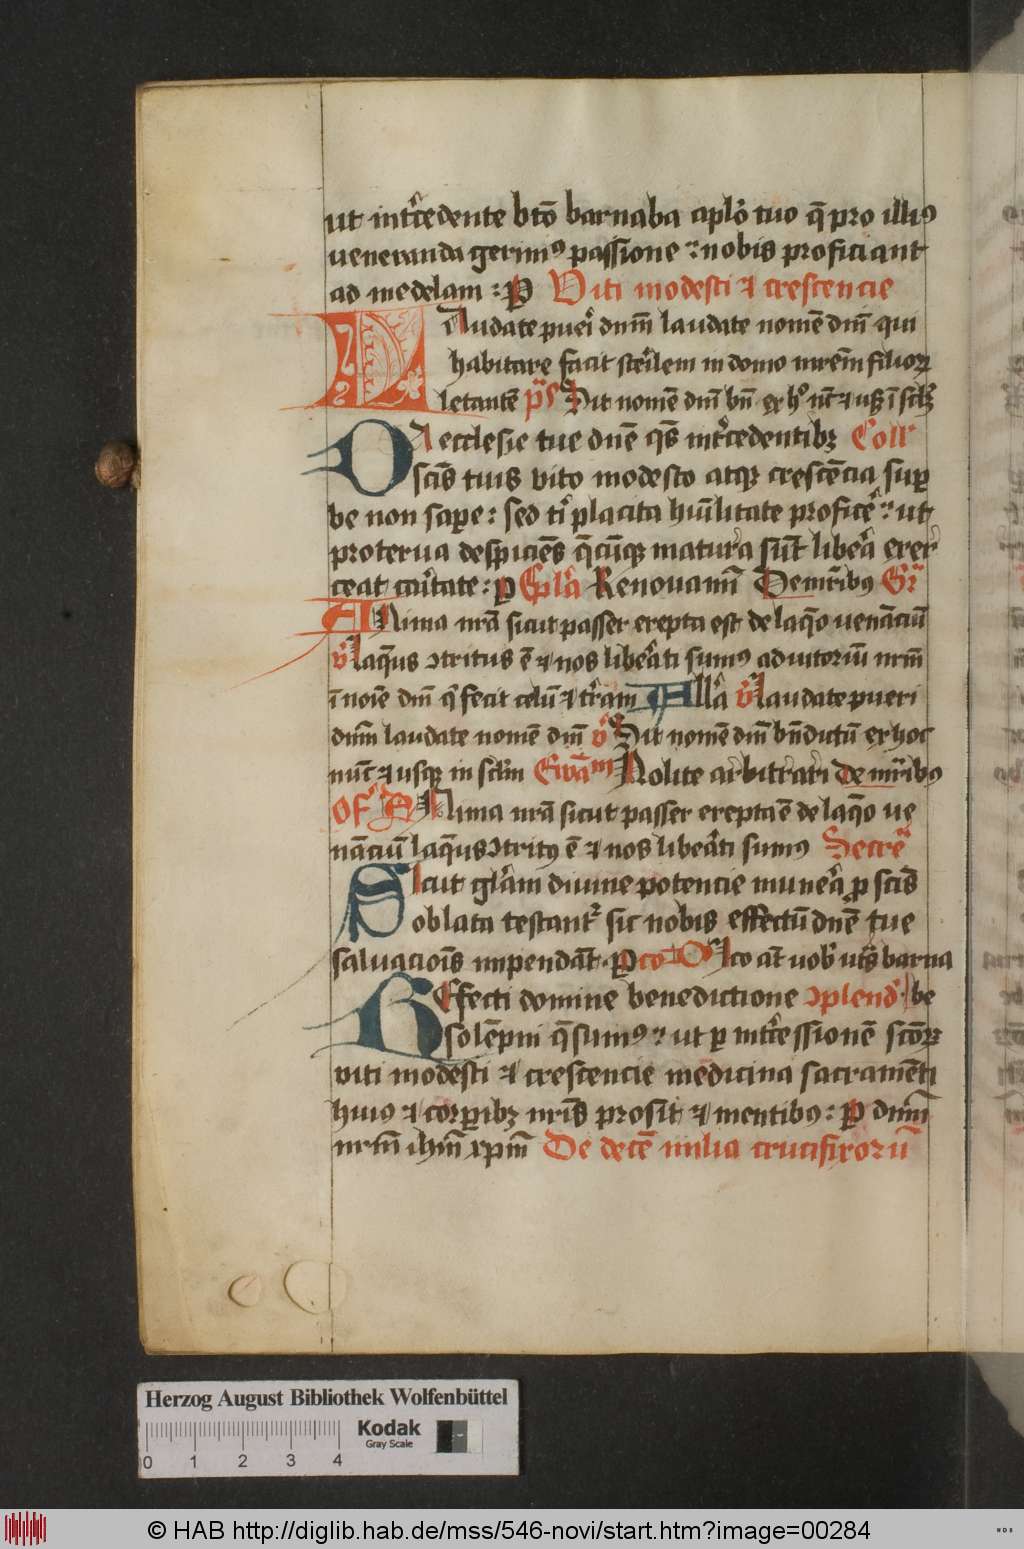 ut intˀcedente bto̅ barnaba aplo̕ tuo q̅ pro illiꝰ
ueneranda gerimꝰ passione : nobis proficiant
ad medelam : P Viti modesti ⁊ crescencie
Laudate pueˀi dnm̅ laudate nome̅ dni̅ qui
habitare facit steˀilem in domo mrem̅ filioꝝ
letante̅ ps̅ Sit nome̅ dni̅ bn̅ ex hͦ nc̅ ⁊ usqꝫ i̅ sclꝫ
DA ecclesie tue dne̅ qs̅ intˀcedentibꝫ Coll
scis̅ tuis vito modesto atqꝫ cresce̅cia suꝑ
be non saꝑe : sed tˀi placita hui̅litate proficeˀ : ut
proterua despicie̅s q̅cu̅qꝫ matura su̅t libeˀa exer
ceat caˀitate : P Epl̅a Renouami̅ De mr̅ibus Gr̅
ANima nra̅ sicut passer erepta est de laq̅o uena̅ciu̅
v̕ laq̅us ꝯtritus e̅ ⁊ nos libeˀati sumꝰ adiutoriu̅ nrm̅
i̅ noie̅ dni̅ qˀ fecit celu̅ ⁊ tˀram All̅a v̕ laudate pueri
dnm̅ laudate nome̅ dni̅ v̕ Sit nome̅ dni̅ bn̅dictu̅ ex hoc
nuc̅ ⁊ usqꝫ in sclm̅ Ewa̅m Nolite arbitrari De mr̅ibꝰ
OF ANima nra̅ sicut passer erepta e̅ de laq̅o ue
na̅ciu̅ laq̅us ꝯtritꝰ e̅ ⁊ nos libeˀati sumꝰ Secre̅
SIcut glˀam diuine potencie muneˀa ꝓ scis̅
oblata testantˀ sic nobis effectu̅ dne̅ tue
saluacioi̅s impenda̅t . P co̅ Ego
Effecti domine benedictione ꝯplend̕ be
Rsole̅pni q̅sumꝰ : ut ꝑ intˀcessione̅ sco̅ꝝ
viti modesti ⁊ crescencie medicina sacrame̅ti
huiꝰ ⁊ corꝑibꝫ nris̅ prosit ⁊ mentibꝰ : P dnm̅
nrm̅ ihm̅ xpm̅ De dece̅ milia crucifixoru̅
Herzog August Bibliothek Wolfenbüttel
Kodak
Gray Scale
0 1 2 3 4
© HAB http://diglib.hab.de/mss/546-novi/start.htm?image=00284